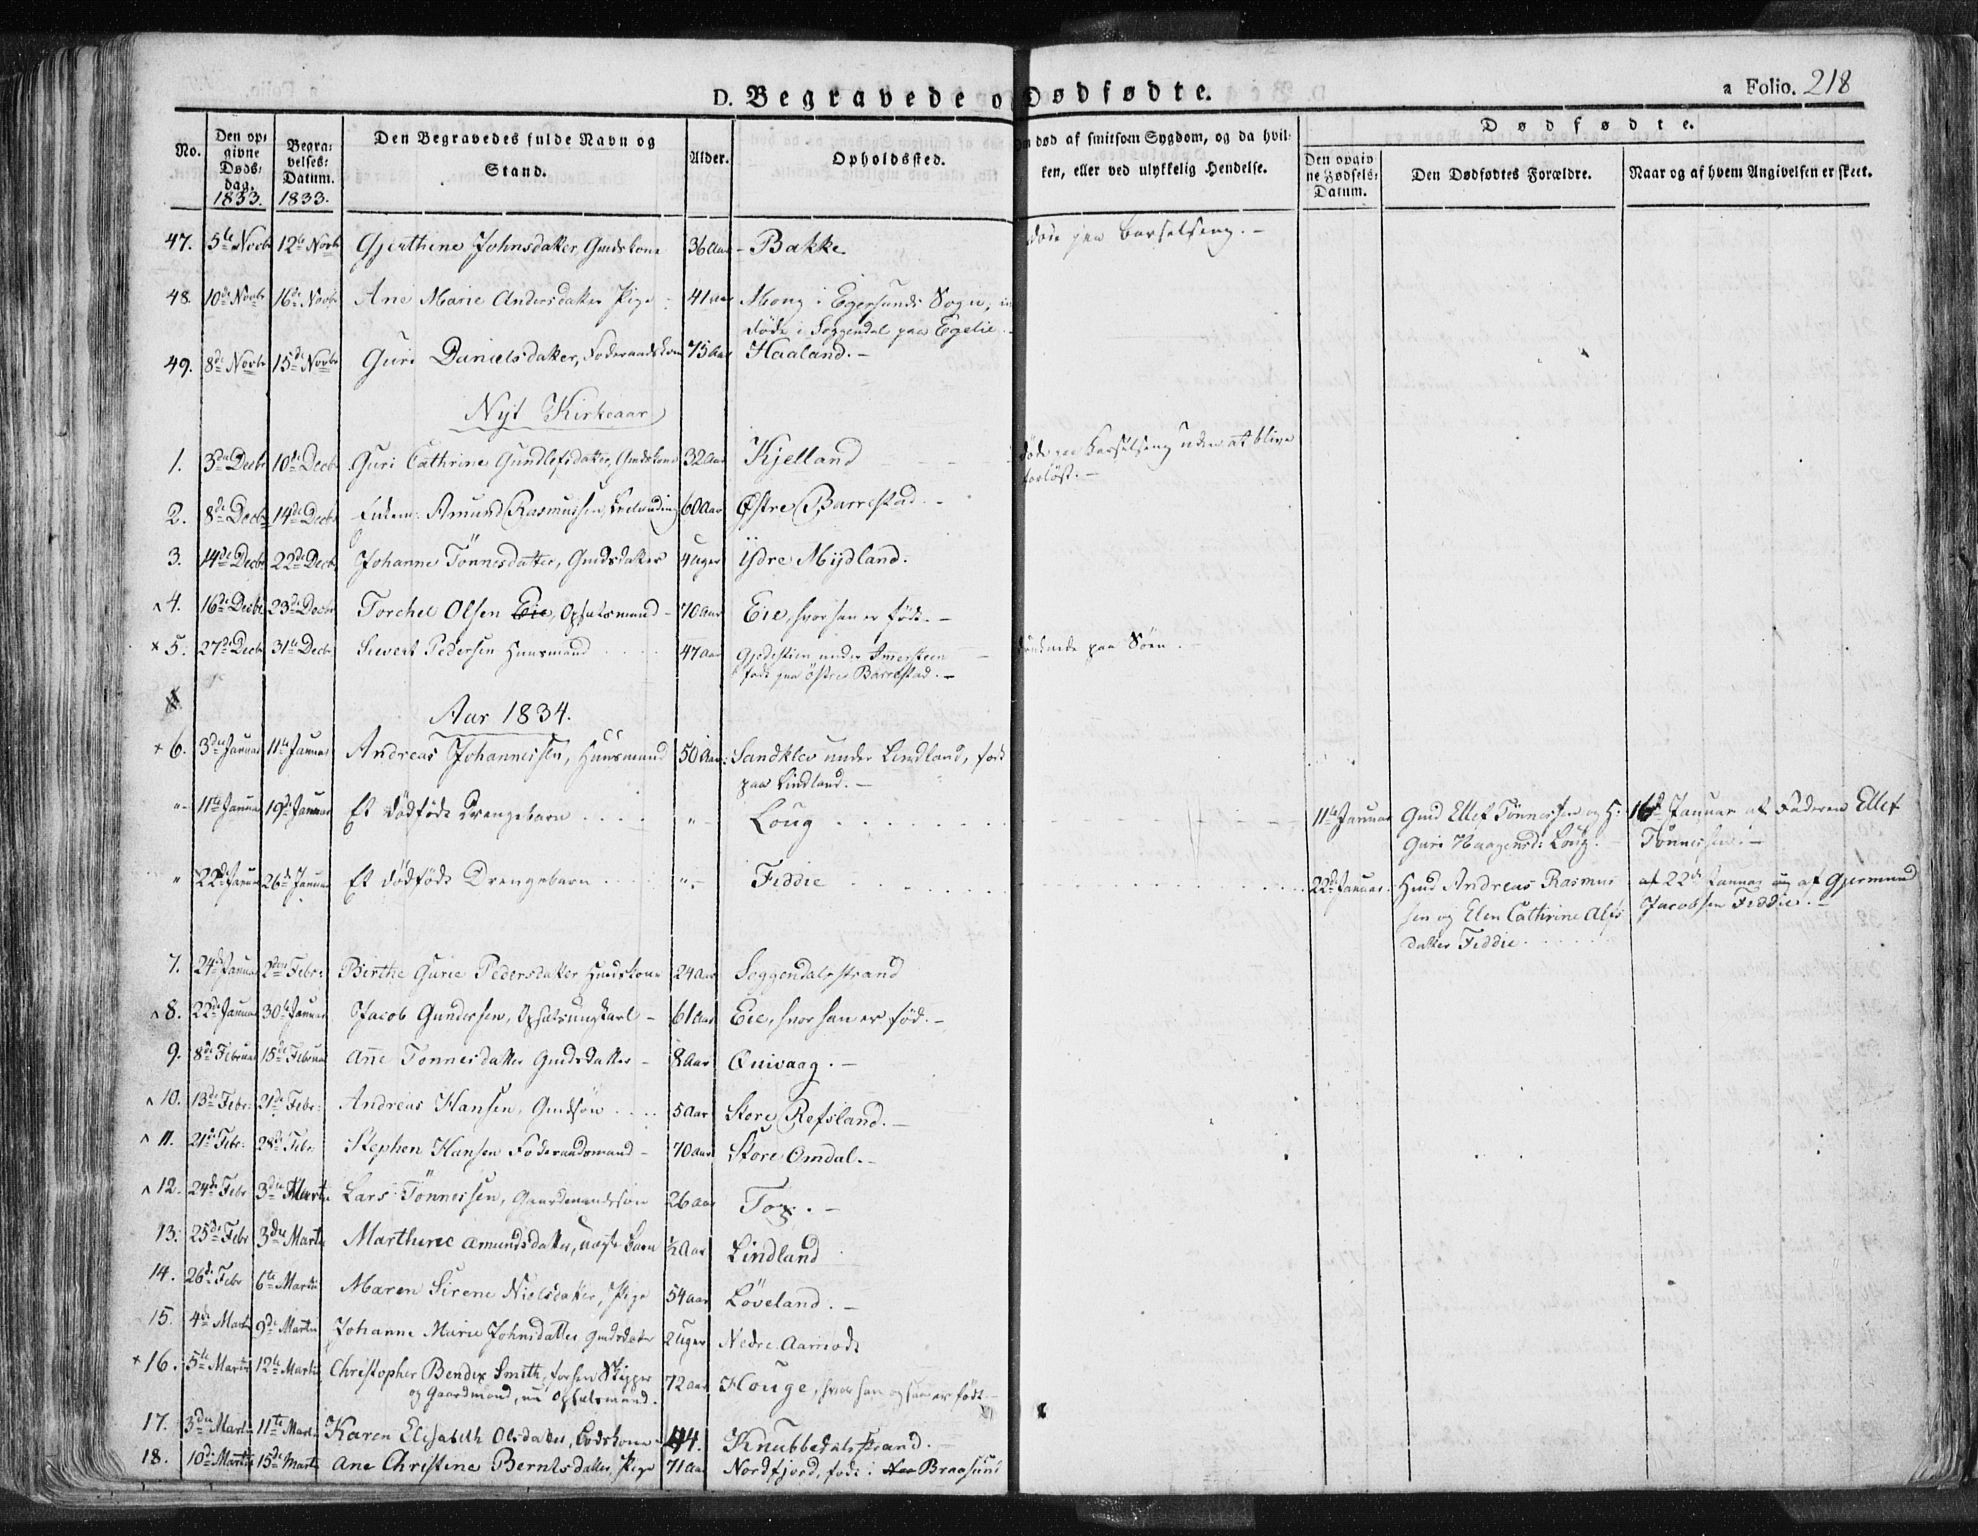 D. Begravede o Dødfødte.
a Folio. 218
No.
Den op-
givne
Døds-
dag.
1833.
Begra-
velses-
Datum.
1833.
Den Begravedes fulde Navn og
Stand.
Alder.
Opholdssted.
død af smitsom Sygdom, og da hvil-
ken, eller ved ulykkelig Hendelse.
Dødfødte.
Den opgiv
ne Fødsels-
Datum.
Den Dødfødtes Forældre.
Naar og af hvem Angivelsen er skeet.
47. 5te Novbr 12te Novbr Gjerthine Johnsdatter, Gmdskone 36 Aar - Bakke døde paa barselseng. -
48. 10de Novbr 16de Novbr Ane Marie Andersdatter Pige 41 Aar Mong i Egersunds Sogn,
døde i Soggendal paa Egelie.
49. 8de Novbr 15de Novbr Guri Danielsdatter, Foderaadskone 75 Aar Haaland. -
Nyt Kirkeaar
1. 3die Decbr 10de Decbr Guri Cathrine Gundlefsdatter, Gmdskone 32 Aar Kjelland døde paa barselseng uden at blive
forløst. -
2. 8de Decbr 14de Decbr Amund Rasmussen 60 Aar Østre Barrestad. -
3. 14de Decbr 22de Decbr Johanne Tönnesdatter, Gmdsdatter 4 Uger Ydre Mydland.
4. 16de Decbr 23de Decbr Torchel Olsen Eie, Opsætsmand - 70 Aar Eie, hvor han er født. -
× 5. 27de Decbr 31te Decbr Sivert Pedersen Huusmand 47 Aar Gjedestien under Amersteen
født paa östre Barrestad. -
druknede paa Söen. -
Aar 1834.
× 6. 3die Januar 11te Januar Andreas Johannessen, Huusmand 50 Aar: Sandklev under Lindland, født
paa Lindland. -
" 11te Januar 19de Januar Et dødfødt Drengebarn " - Loug 11te Januar Gmd Ellef Tönnessen og H: 16de Januar af Faderen Ellef
Guri Haagensd: Loug. - Tönnessen. -
" 22de Januar 26de Januar Et dødfødt Drengebarn " - Feddie 22de Januar. Hmd Andreas Rasmus af 22de Januar af Gjermund
sen og Elen Cathrine Alfs Jacobsen Feddie. -
datter Feddie.
7. 24de Januar 2den Febr: Berthe Gurie Pedersdatter Hmdskone 24 Aar Soggendalsstrand
8. 22de Januar 30te Januar Jacob Gundersen, Opsætsungkarl - 61 Aar Eie, hvor han er fød. -
9. 8de Februar 15de Februar Ane Tonnesdatter Gmdsdatter - 8 Aar Quivaag. -
10. 13de Febr: 21de Febr: Andreas Hansen, Gmdsøn 5 Aar Store Refsland. -
11. 21de Febr: 28de Febr Stephen Hansen Foderaadsmand - 70 Aar Store Omdal. -
12. 24de Febr 3die Marts Lars Tönnessen, Gaardmandssøn 26 Aar Tog. -
13. 25de Febr 3die Marts Marthine Amundsdatter, uægte Barn ½ Aar Lindland
14. 26de Febr 6te Marts Maren Sirene Nielsdatter, Pige 54 Aar Löveland. -
15. 4de Marts 9de Marts Johanne Marie Johnsdatter Gmdsdatter 2 Uger Nedre Aamodt
× 16. 5te Marts 12te Marts Christopher Bendix Smith, forhen Skipper
og Gaardmand, nu Opsætsmand. 72 Aar Houge, hvor han ogsaa er født. -
17. 3die Marts 11te Marts Karen Elisabeth Olsdatter, 44. Knubbedalsstrand. -
18. 10de Marts 15de Marts Ane Christine Berntsdatter, Pige 71 Aar Nordfjord, født i Braasund